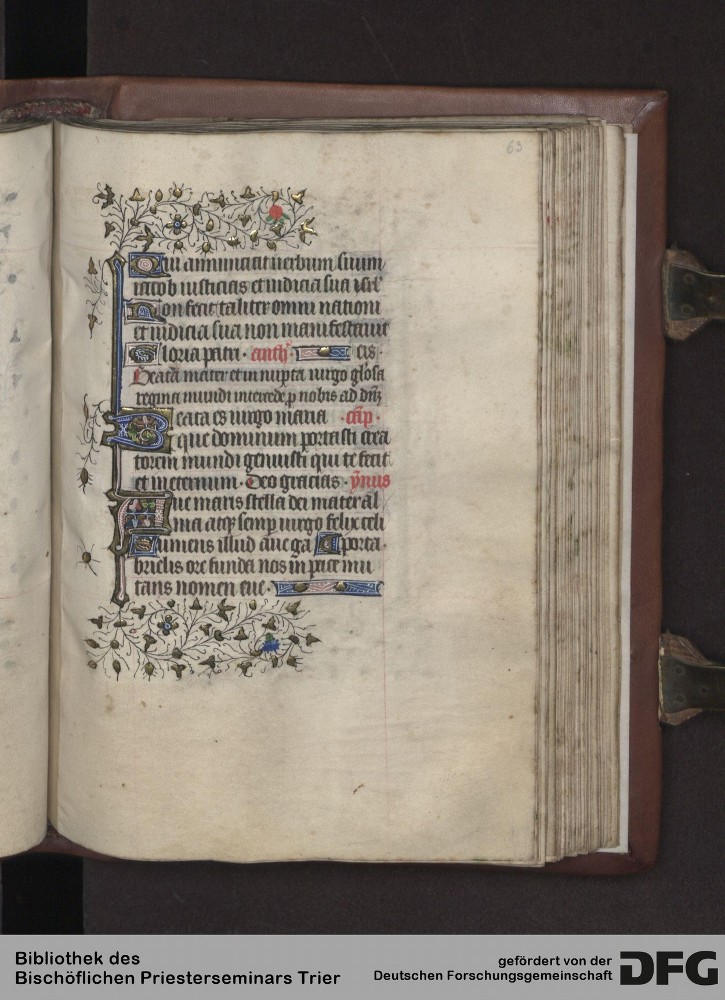 63
Qui annunciat uerbum suum
iacob iusticias et iudicia sua isrl'
Non fecit taliter omni nationi
et iudicia sua non manifestauit
Gloria patri · anth' sis ·
Beata mater et innupta uirgo gl'osa
regina mundi intercede p nobis ad dnm
Beata es uirgo maria · cap̄ ·
que dominum portasti crea
torem mundi genuisti qui te fecit
et in eternum · Deo gracias · ȳnus
Aue maris stella dei mater al
ma atqz semp uirgo felix celi
Sumens illud aue ga porta ·
brielis ore funda nos in pace mu
tans nomen eue ·
Bibliothek des
Bischöflichen Priesterseminars Trier
gefördert von der
Deutschen Forschungsgemeinschaft
DFG